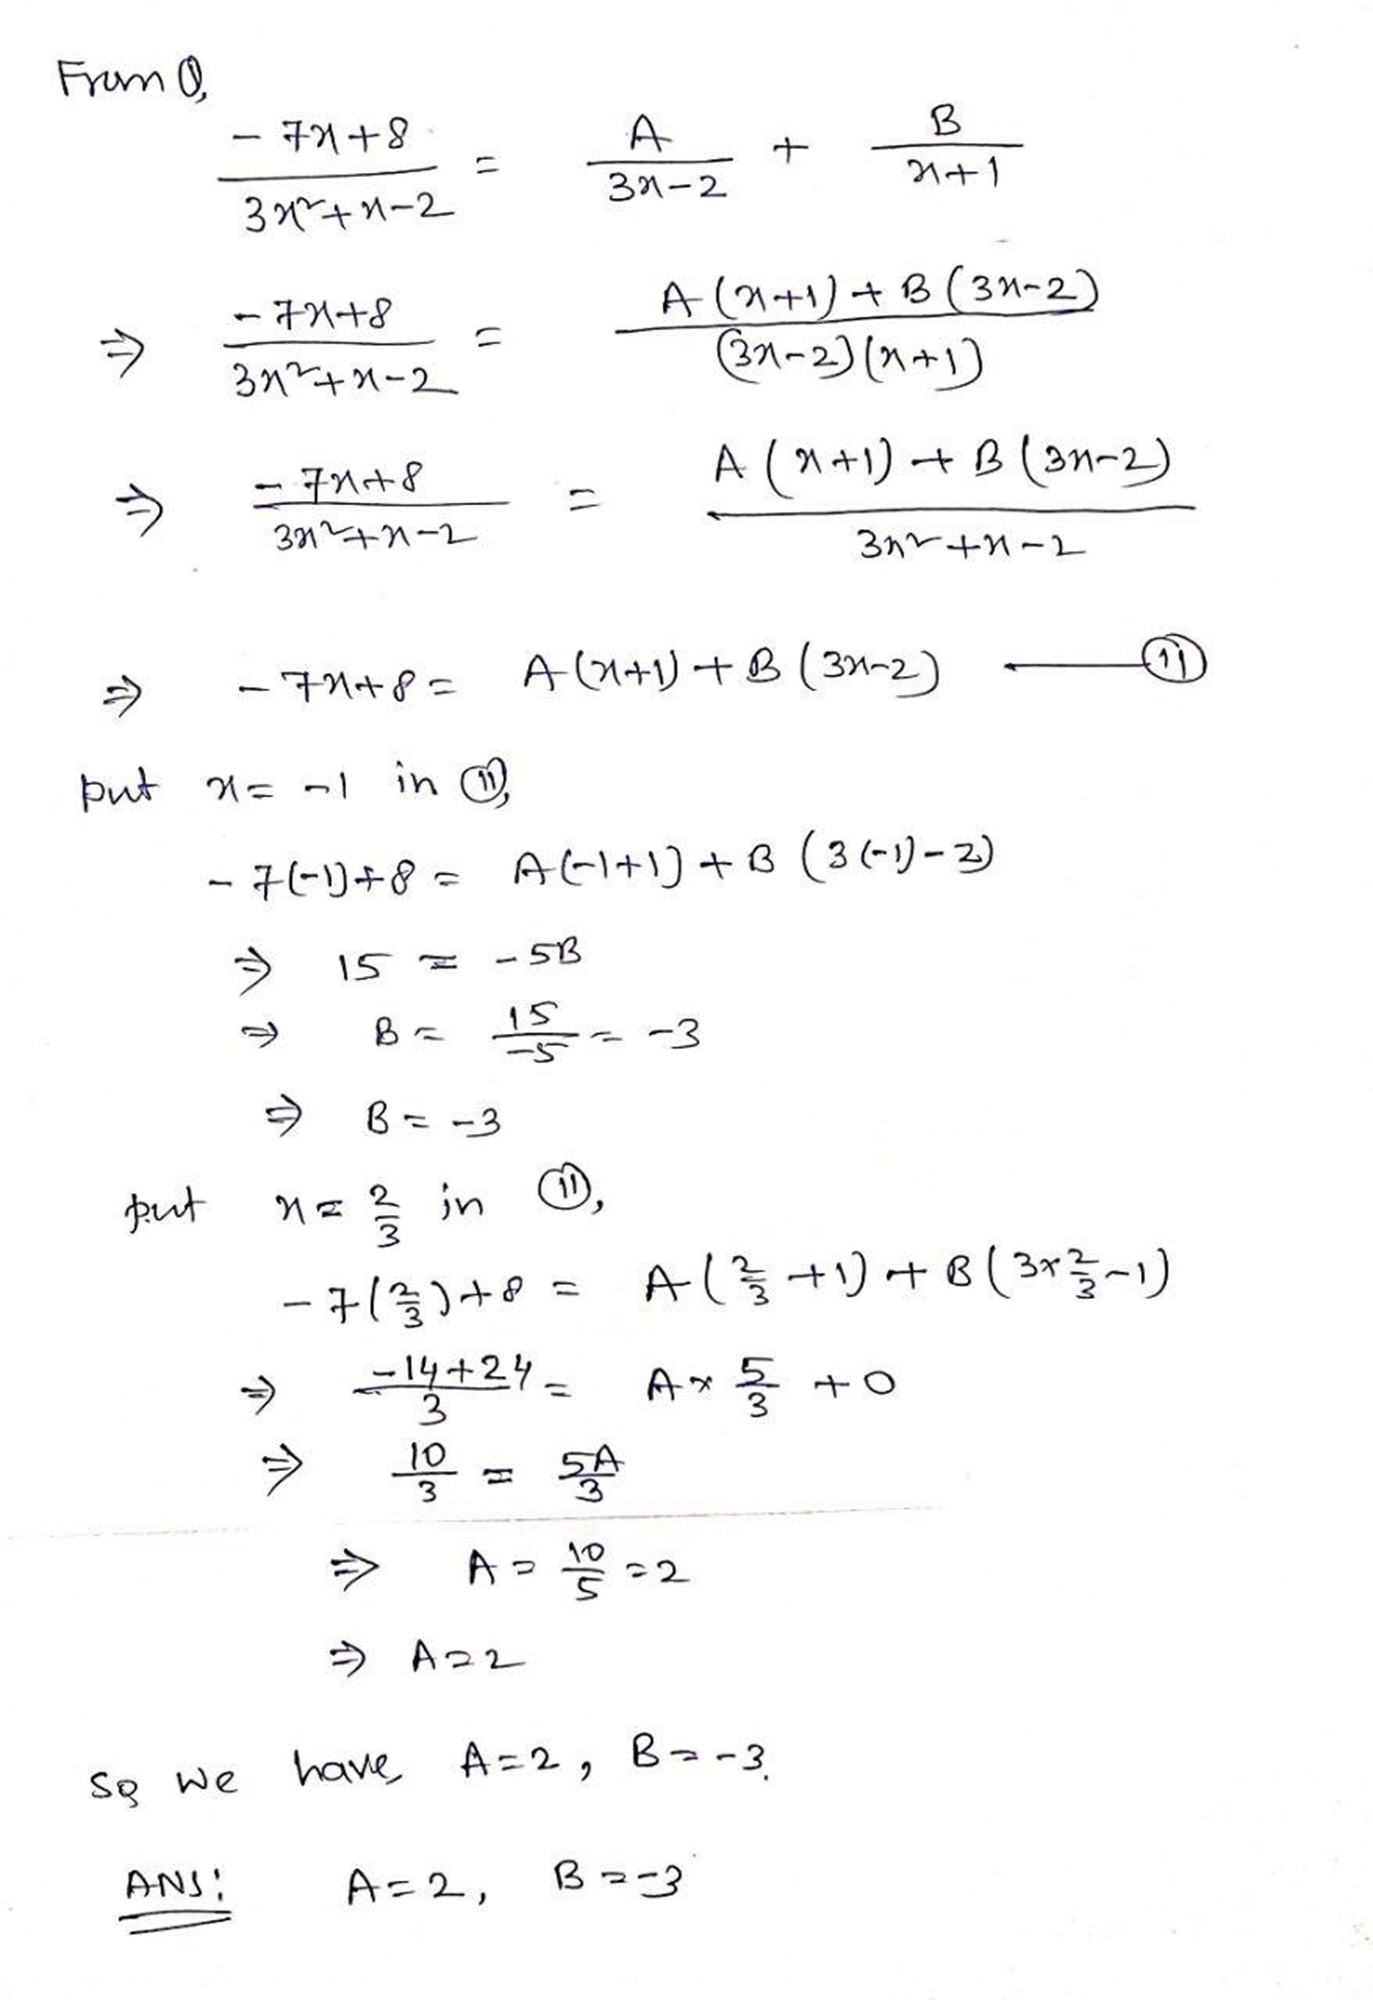 From ①,
(-7x+8)/(3x²+x-2) = A/(3x-2) + B/(x+1)
⇒ (-7x+8)/(3x²+x-2) = (A(x+1)+B(3x-2))/((3x-2)(x+1))
⇒ (-7x+8)/(3x²+x-2) = (A(x+1)+B(3x-2))/(3x²+x-2)
⇒ -7x+8 = A(x+1)+B(3x-2) — ⑪
put x = -1 in ⑪,
-7(-1)+8 = A(-1+1)+B(3(-1)-2)
⇒ 15 = -5B
⇒ B = 15/-5 = -3
⇒ B = -3
put x = 2/3 in ⑪,
-7(2/3)+8 = A(2/3+1)+B(3×2/3-1)
⇒ (-14+24)/3 = A×5/3 + 0
⇒ 10/3 = 5A/3
⇒ A = 10/5 = 2
⇒ A = 2
So we have, A=2, B=-3.
ANS: A=2, B=-3